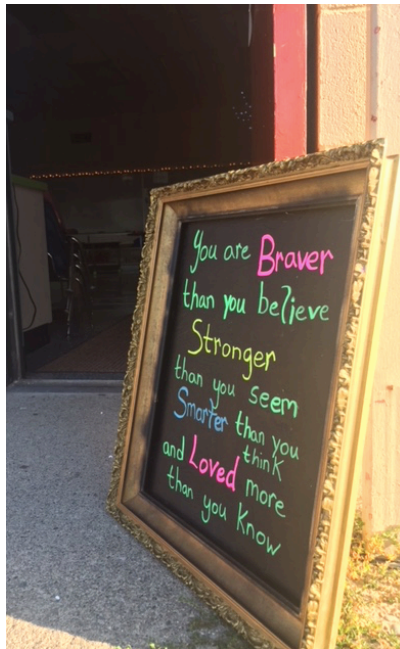 You are Braver
than you believe
Stronger
than you seem
Smarter than you
think
and Loved more
than you Know